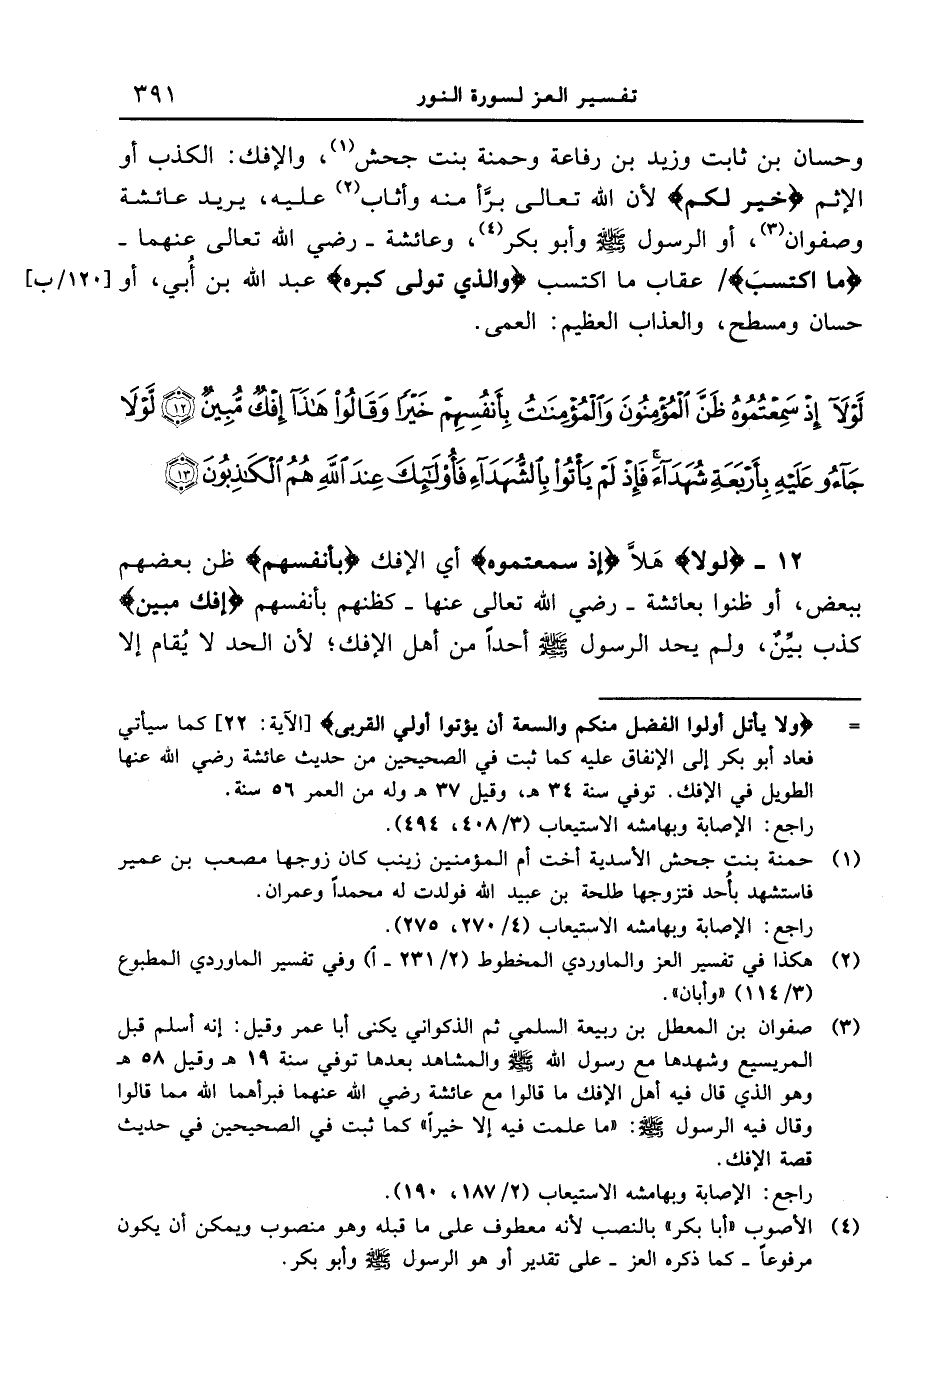 تفسير العز لسورة النور ٣٩١
وحسان بن ثابت وزيد بن رفاعة وحمنة بنت جحش(١)، والإفك: الكذب أو
الإثم ﴿خير لكم﴾ لأن الله تعالى برَّأ منه وأثاب(٢) عليه، يريد عائشة
وصفوان(٣)، أو الرسول ﷺ وأبو بكر(٤)، وعائشة ـ رضي الله تعالى عنهما ـ
﴿ما اكتسبَ﴾/ عقاب ما اكتسب ﴿والذي تولى كبره﴾ عبد الله بن أُبي، أو [١٢٠/ب]
حسان ومسطح، والعذاب العظيم: العمى.
لَّوْلَآ إِذْ سَمِعْتُمُوهُ ظَنَّ ٱلْمُؤْمِنُونَ وَٱلْمُؤْمِنَٰتُ بِأَنفُسِهِمْ خَيْرًا وَقَالُوا۟ هَٰذَآ إِفْكٌ مُّبِينٌ ١٢ لَّوْلَا
جَآءُو عَلَيْهِ بِأَرْبَعَةِ شُهَدَآءَ ۚ فَإِذْ لَمْ يَأْتُوا۟ بِٱلشُّهَدَآءِ فَأُو۟لَٰٓئِكَ عِندَ ٱللَّهِ هُمُ ٱلْكَٰذِبُونَ ١٣
١٢ ـ ﴿لولا﴾ هَلاَّ ﴿إذ سمعتموه﴾ أي الإفك ﴿بأنفسهم﴾ ظن بعضهم
ببعض، أو ظنوا بعائشة ـ رضي الله تعالى عنها ـ كظنهم بأنفسهم ﴿إفك مبين﴾
كذب بيِّنٌ، ولم يحد الرسول ﷺ أحداً من أهل الإفك؛ لأن الحد لا يُقام إلا
= ﴿ولا يأتل أولوا الفضل منكم والسعة أن يؤتوا أولي القربى﴾ [الآية: ٢٢] كما سيأتي
فعاد أبو بكر إلى الإنفاق عليه كما ثبت في الصحيحين من حديث عائشة رضي الله عنها
الطويل في الإفك. توفي سنة ٣٤ هـ، وقيل ٣٧ هـ وله من العمر ٥٦ سنة.
راجع: الإصابة وبهامشه الاستيعاب (٤٠٨/٣، ٤٩٤).
(١) حمنة بنت جحش الأسدية أخت أم المؤمنين زينب كان زوجها مصعب بن عمير
فاستشهد بأُحد فتزوجها طلحة بن عبيد الله فولدت له محمداً وعمران.
راجع: الإصابة وبهامشه الاستيعاب (٢٧٠/٤، ٢٧٥).
(٢) هكذا في تفسير العز والماوردي المخطوط (٢٣١/٢ ـ أ) وفي تفسير الماوردي المطبوع
(١١٤/٣) «وأبان».
(٣) صفوان بن المعطل بن ربيعة السلمي ثم الذكواني يكنى أبا عمر وقيل: إنه أسلم قبل
المريسيع وشهدها مع رسول الله ﷺ والمشاهد بعدها توفي سنة ١٩ هـ وقيل ٥٨ هـ
وهو الذي قال فيه أهل الإفك ما قالوا مع عائشة رضي الله عنهما فبرأهما الله مما قالوا
وقال فيه الرسول ﷺ: «ما علمت فيه إلا خيراً» كما ثبت في الصحيحين في حديث
قصة الإفك.
راجع: الإصابة وبهامشه الاستيعاب (١٨٧/٢، ١٩٠).
(٤) الأصوب «أبا بكر» بالنصب لأنه معطوف على ما قبله وهو منصوب ويمكن أن يكون
مرفوعاً ـ كما ذكره العز ـ على تقدير أو هو الرسول ﷺ وأبو بكر.